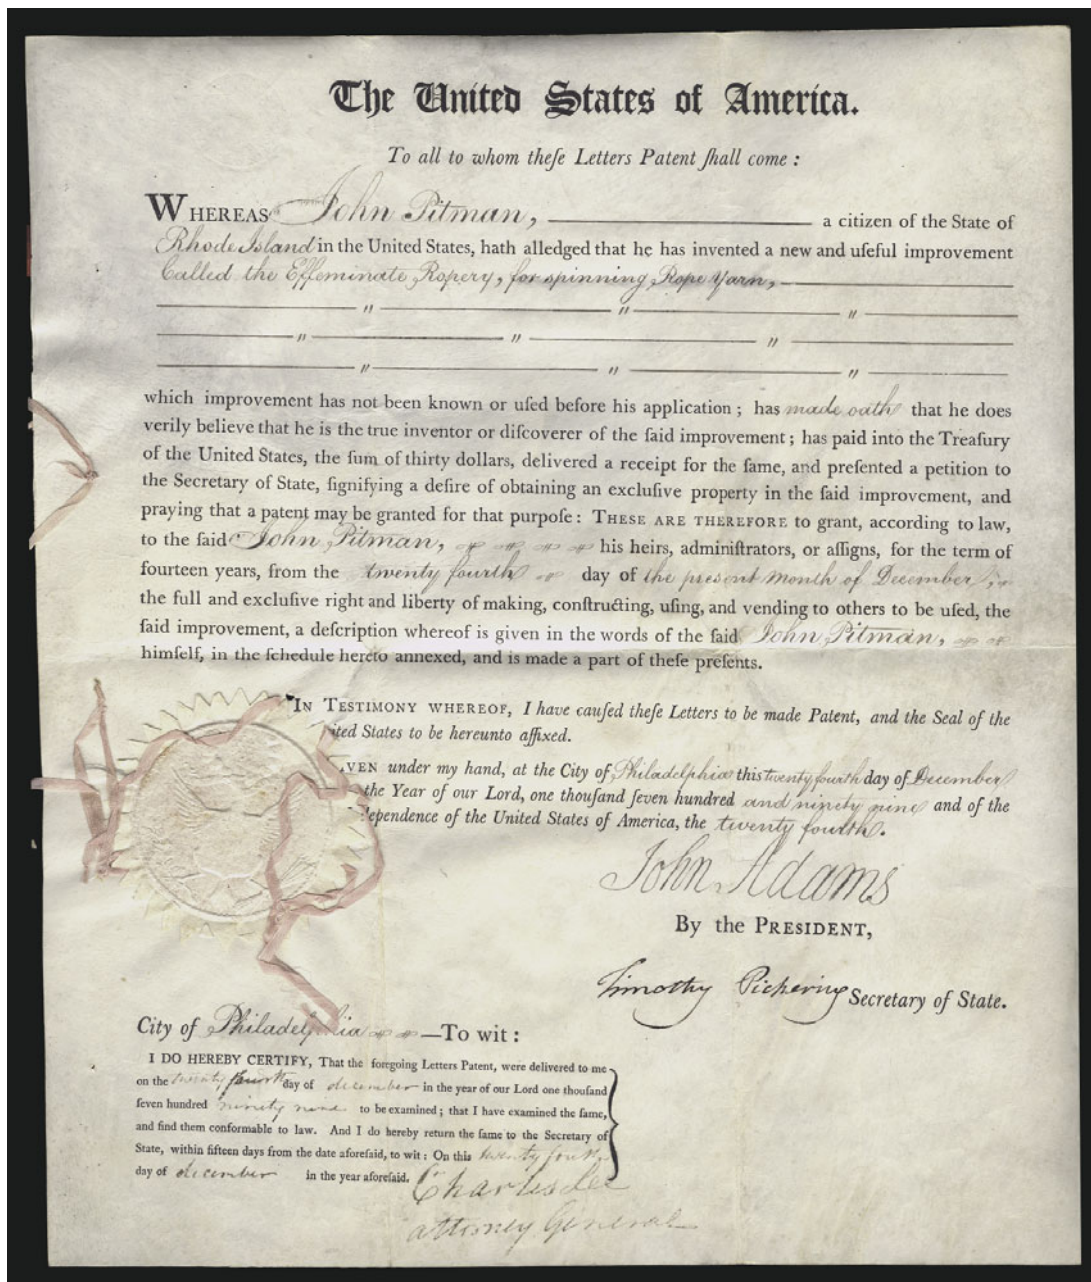 The United States of America.
To all to whom theſe Letters Patent ſhall come :
WHEREAS John Pitman, a citizen of the State of
Rhode Island in the United States, hath alledged that he has invented a new and uſeful improvement
Called the Effeminate Ropery, for spinning Rope Yarn,
which improvement has not been known or uſed before his application ; has made oath that he does
verily believe that he is the true inventor or diſcoverer of the ſaid improvement ; has paid into the Treaſury
of the United States, the ſum of thirty dollars, delivered a receipt for the ſame, and preſented a petition to
the Secretary of State, ſignifying a deſire of obtaining an excluſive property in the ſaid improvement, and
praying that a patent may be granted for that purpoſe : THESE ARE THEREFORE to grant, according to law,
to the ſaid John Pitman, his heirs, adminiſtrators, or aſſigns, for the term of
fourteen years, from the twenty fourth day of the present month of December,
the full and excluſive right and liberty of making, conſtructing, uſing, and vending to others to be uſed, the
ſaid improvement, a deſcription whereof is given in the words of the ſaid John Pitman,
himſelf, in the ſchedule hereto annexed, and is made a part of theſe preſents.
IN TESTIMONY WHEREOF, I have cauſed theſe Letters to be made Patent, and the Seal of the
ited States to be hereunto affixed.
VEN under my hand, at the City of Philadelphia this twenty fourth day of December
the Year of our Lord, one thouſand ſeven hundred and ninety nine and of the
dependence of the United States of America, the twenty fourth.
John Adams
By the PRESIDENT,
Timothy Pickering Secretary of State.
City of Philadelphia —To wit :
I DO HEREBY CERTIFY, That the foregoing Letters Patent, were delivered to me
on the twenty fourth day of december in the year of our Lord one thouſand
ſeven hundred ninety nine to be examined ; that I have examined the ſame,
and find them conformable to law. And I do hereby return the ſame to the Secretary of
State, within fifteen days from the date aforeſaid, to wit : On this twenty fourth
day of december in the year aforeſaid.
Charles Lee
attorney General